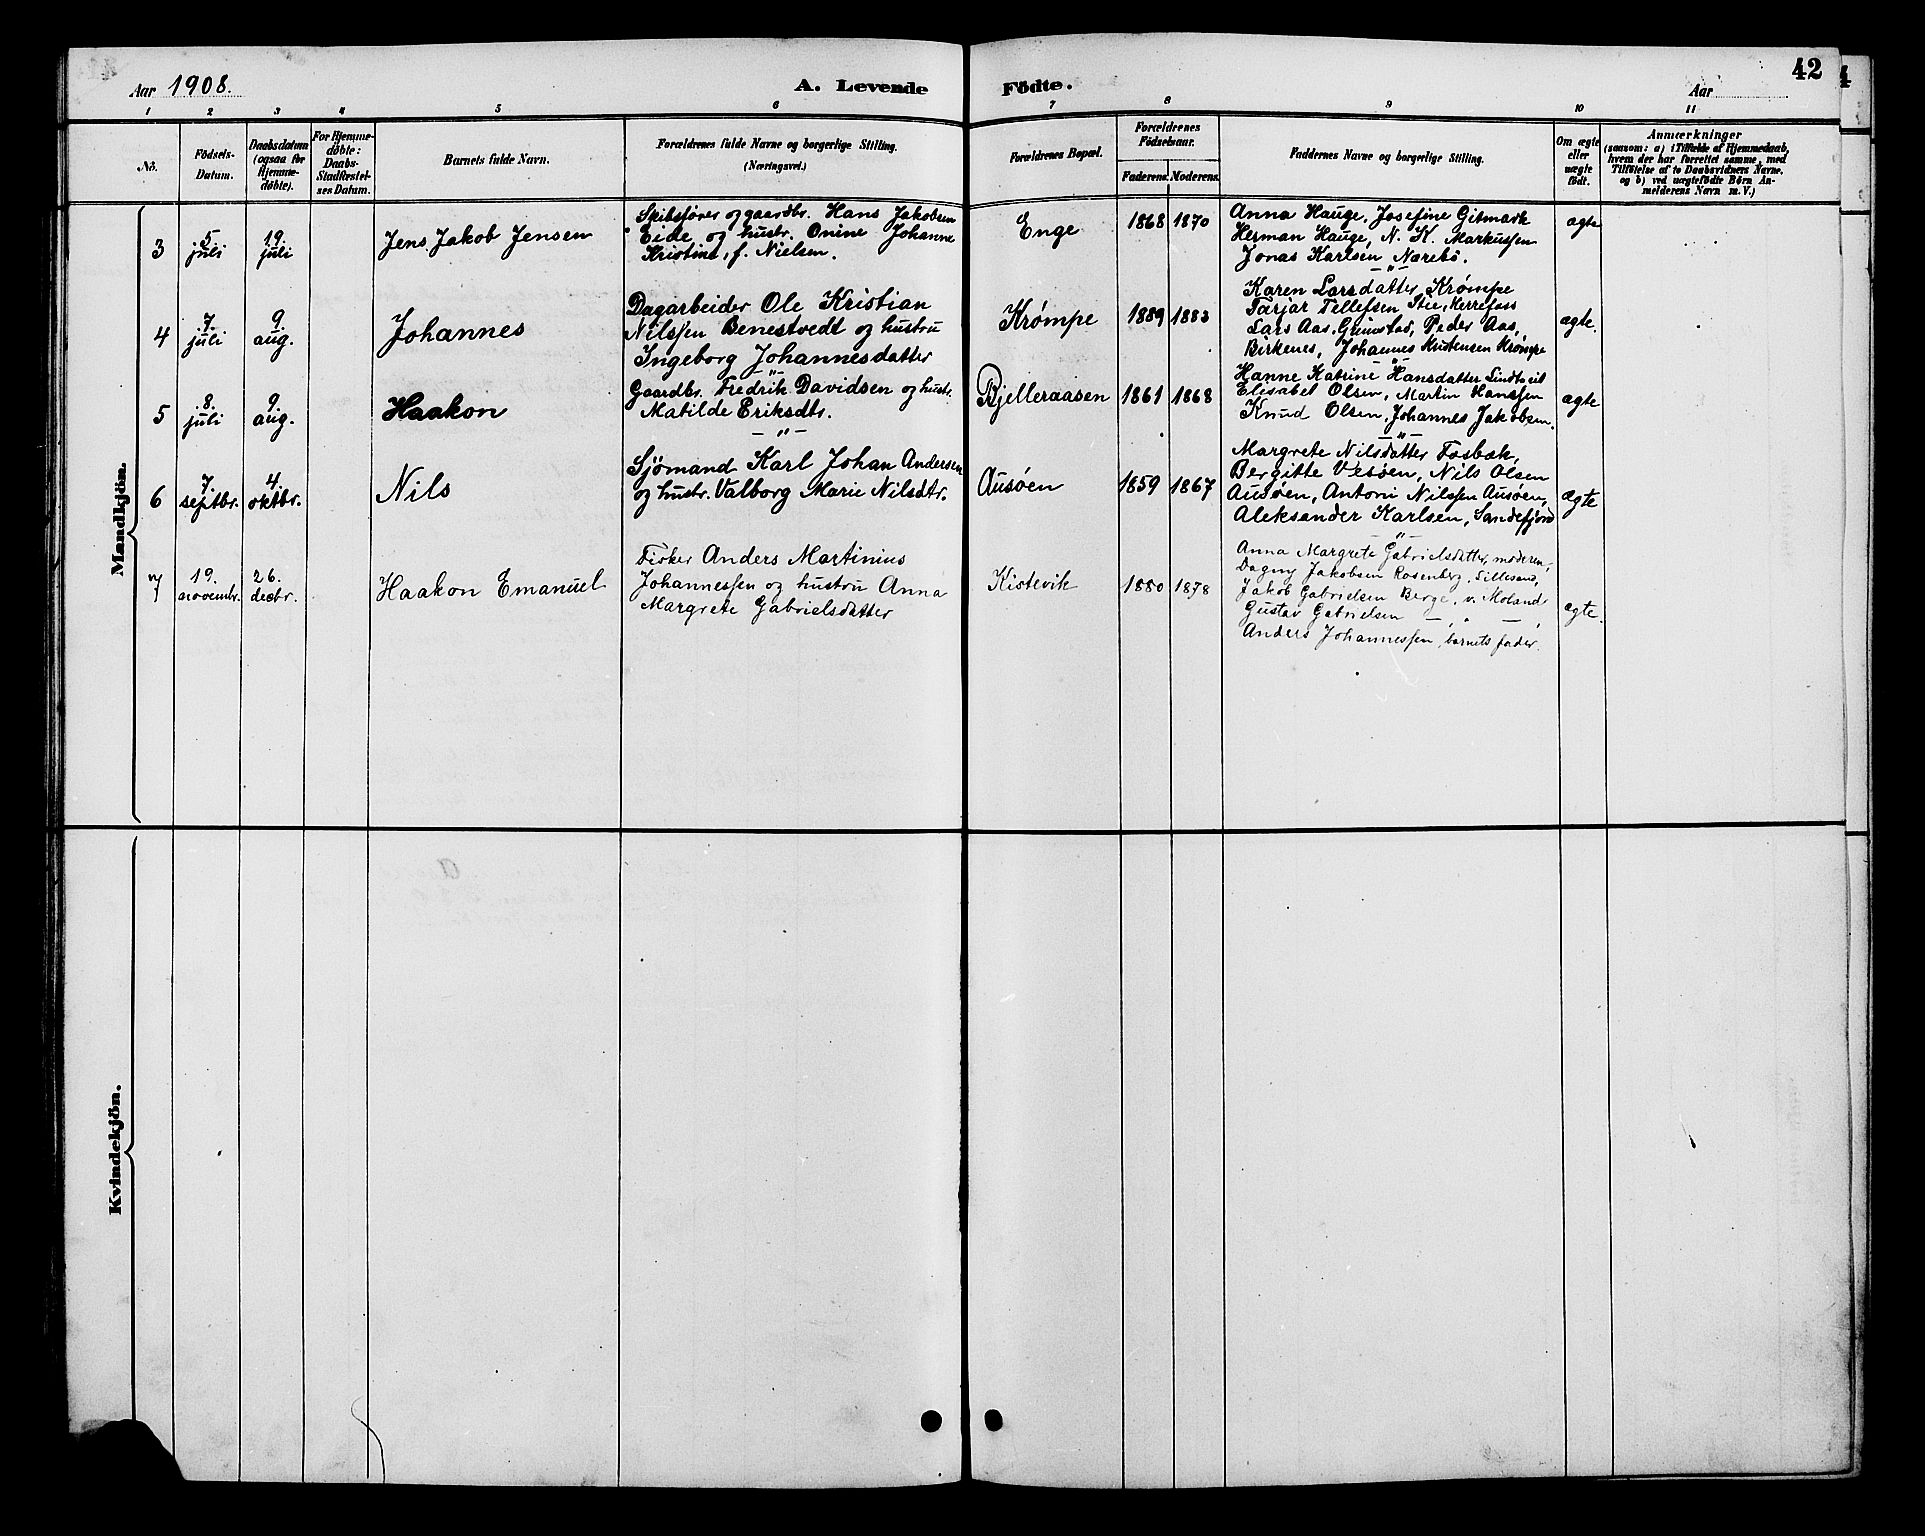 Aar 1908.
A. Levende Födte.
Aar
42
1 2 3 4 5 6 7 8 9 10 11
No.
Födsels-
Datum.
Daabsdatum
(ogsaa for
Hjemme-
døbte).
For Hjemme-
døbte:
Daabs-
Stadfæstel-
ses Datum.
Barnets fulde Navn.
Forældrenes fulde Navne og borgerlige Stilling.
(Næringsvei.)
Forældrenes Bopæl.
Forældrenes
Fødselsaar.
Faderens. Moderens.
Faddernes Navne og borgerlige Stilling.
Om ægte
eller
uægte
født.
Anmærkninger
(saasom: a) i Tilfælde af Hjemmedaab,
hvem der har forrettet samme, med
Tilføielse af to Daabsvidners Navne,
og b) ved uægtefødte Børn An-
melderens Navn m. V.)
Mandkjön.
3
5
juli
19
juli
Jens Jakob Jensen
Skibsfører og gaardbr. Hans Jakobsen
Eide og hustr. Onine Johanne
Kristine, f. Nielsen.
Enge
1868 1870
Anna Hauge, Josefine Gitmark
Herman Hauge, N. K. Markussen
Jonas Karlsen Nærebö.
ægte
—"—
4
7
juli
9
aug.
Johannes
Dagarbeider Ole Kristian
Nilssen Benestvedt og hustru
Ingeborg Johannesdatter
Krømpe
1889 1883
Karen Larsdatter, Krømpe
Tarjar Tellefsen Stie, Herrefoss
Lars Aas, Grimstad, Peder Aas,
Birkenes, Johannes Kristensen Krømpe
ægte.
—"—
5
8.
juli
9
aug.
Haakon
Gaardbr. Fredrik Davidsen og hustr.
Matilde Eriksdtr.
Bjelleraasen
1861 1868
Hanne Katrine Hansdatter
Elisabet Olsen, Martin Hanssen
Knud Olsen, Johannes Jakobsen.
ægte
—"—
6
7.
septbr.
4.
oktbr.
Nils
Sjömand Karl Johan Andersen
og hustr. Valborg Marie Nilsdtr.
Ausöen
1859 1867
Margrete Nilsdatter Fosbæk,
Bergitte Vesöen, Nils Olsen
Ausöen, Antoni Nilssen Ausöen,
Aleksander Karlsen, Sandefjord
ægte
—"—
7
19.
novembr.
26.
decbr.
Haakon Emanuel
Fisker Anders Martinius
Johannessen og hustru Anna
Margrete Gabrielsdatter
Kistevik
1880 1878
Anna Margrete Gabrielsdatter, moderen,
Dagny Jakobsen Rosenberg, Lillesand,
Jakob Gabrielsen Berge, v. Moland
Gustav Gabrielsen — " —,
Anders Johannessen, barnets fader.
ægte.
Kvindekjön.